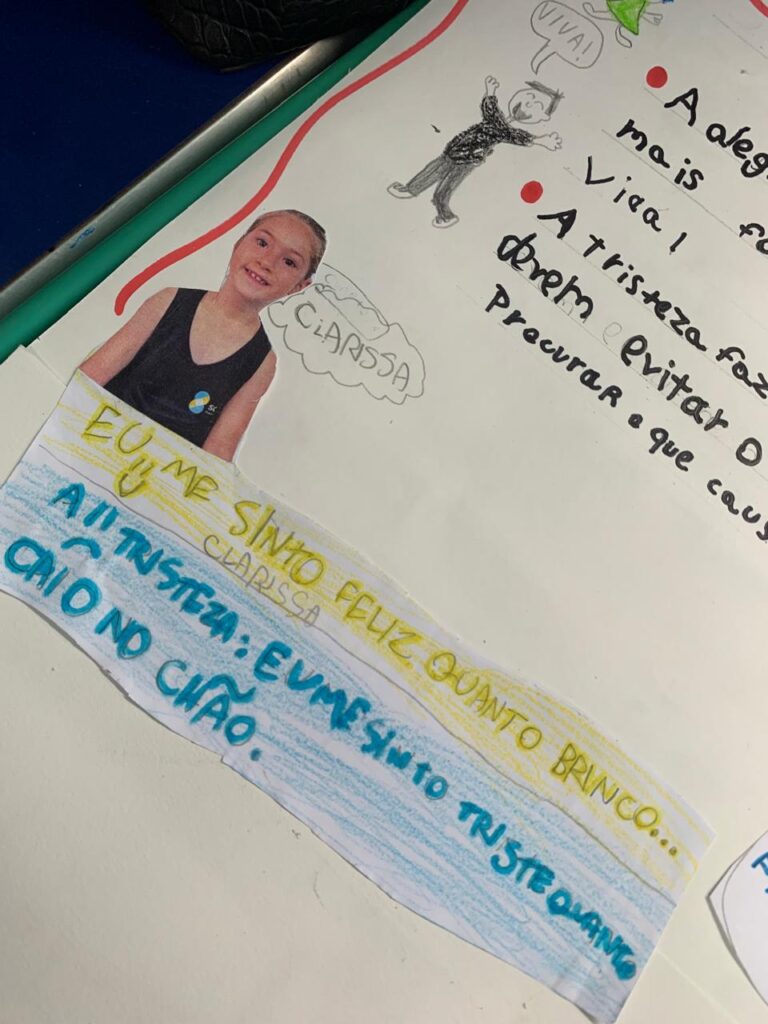 VIVA!
A aleg
mais fo
Viva!
A tristeza faz
devem evitar o
Procurar o que caus
CLARISSA
EU ME SINTO FELIZ QUANTO BRINCO...
CLARISSA
A TRISTEZA: EU ME SINTO TRISTE QUANTO
CAIO NO CHÃO.